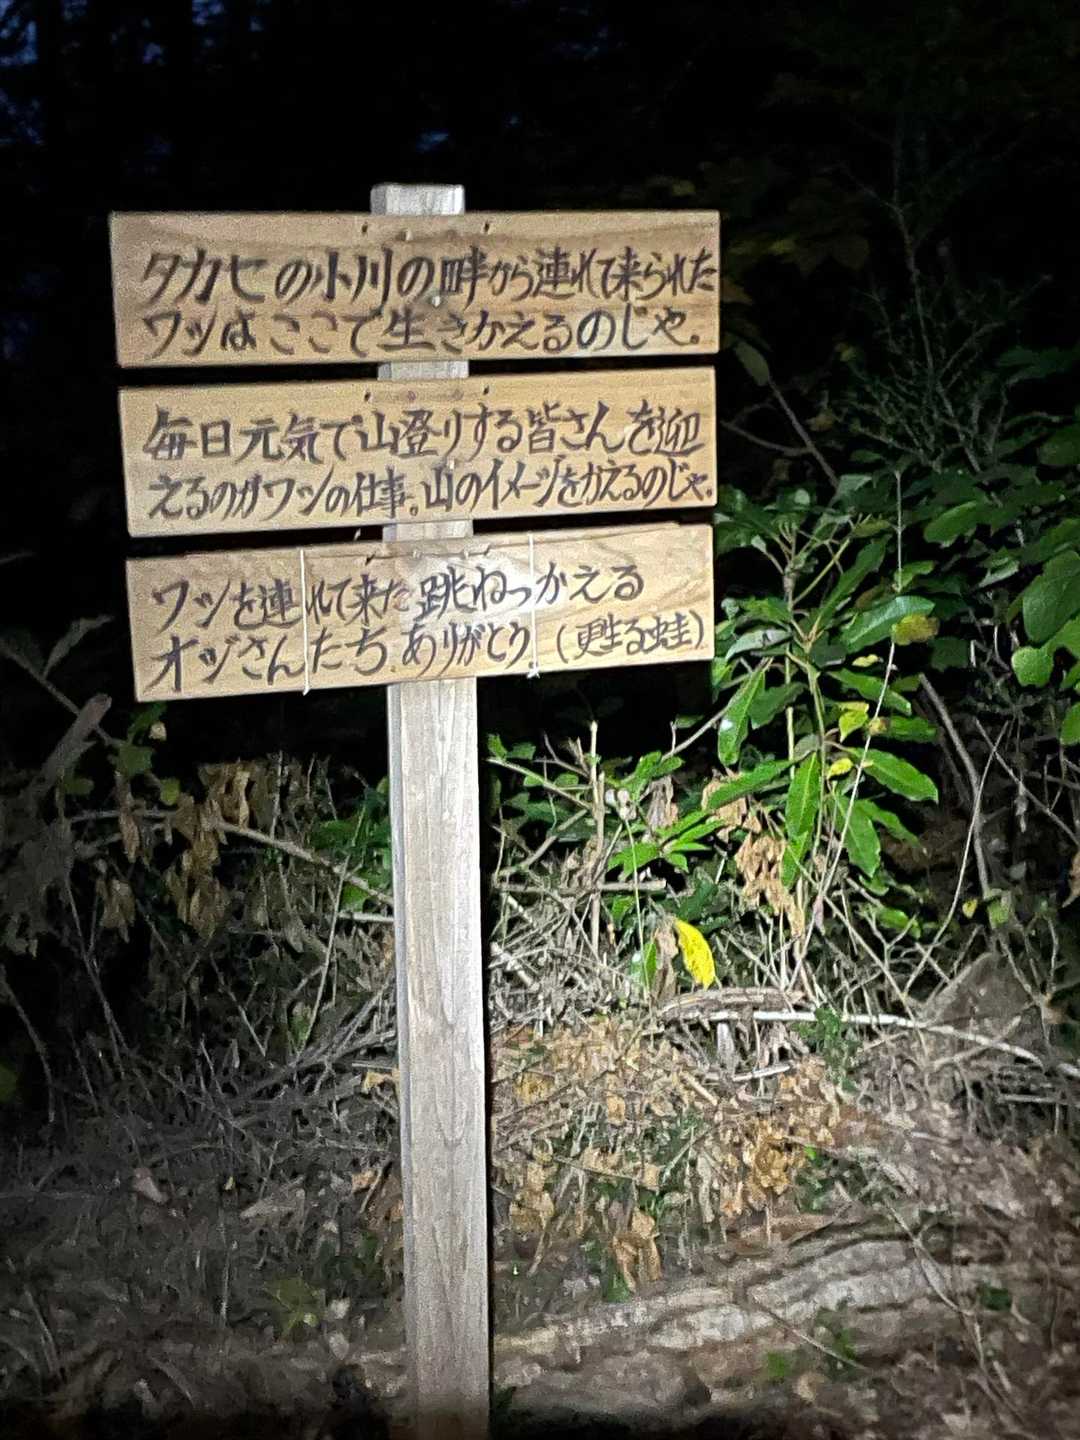 タカセの小川の畔から連れて来られた
ワッはここで生きかえるのじゃ。
毎日元気で山登りする皆さんを迎
えるのがワッの仕事。山のイメージをかえるのじゃ。
ワッを連れて来た跳ねっかえる
オジさんたち。ありがとう。(甦る蛙)